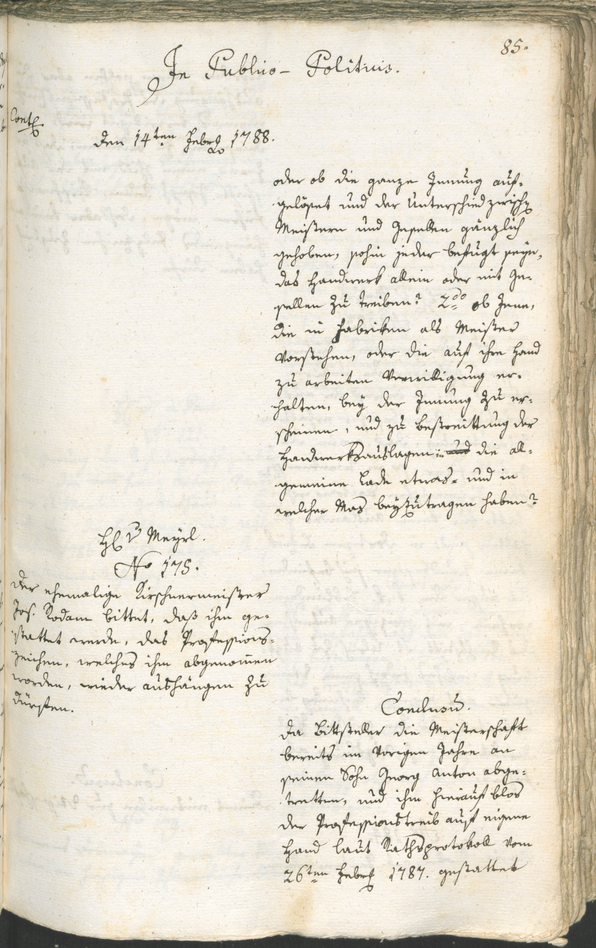 85.
In Publico-Politicis.
Cont.
den 14ten Febr. 1788.
oder ob die ganze Innung auf-
gelöset und der Unterschied zwisch.
Meistern und Gesellen gänzlich
gehoben, sohin jeder befugt seye,
das Handwerk allein oder mit Ge-
sellen zu treiben? 2do ob Jene,
die in Fabriken als Meister
vorstehen, oder die auf ihre Hand
zu arbeiten Verwilligung er-
halten, bey der Innung zu er-
scheinen, und zu Bestreittung der
Handwerksauslagen in die all-
gemeine Lade etwas- und in
welcher Mas beyzutragen haben?
H. v. Meyrl.
No 175.
Der ehemalige Kirschnermeister
Jos. Rodam bittet, daß ihm ge-
stattet werde, das Professions-
zeichen, welches ihm abgenommen
worden, wieder aushängen zu
dürfen.
Conclusum.
Da Bittsteller die Meisterschaft
bereits im vorigen Jahre an
seinen Sohn Georg Anton abge-
tretten, und ihm hierauf blos
der Professionstrieb auf eigene
Hand laut Rathsprotokoll vom
26ten Febr. 1787. gestattet